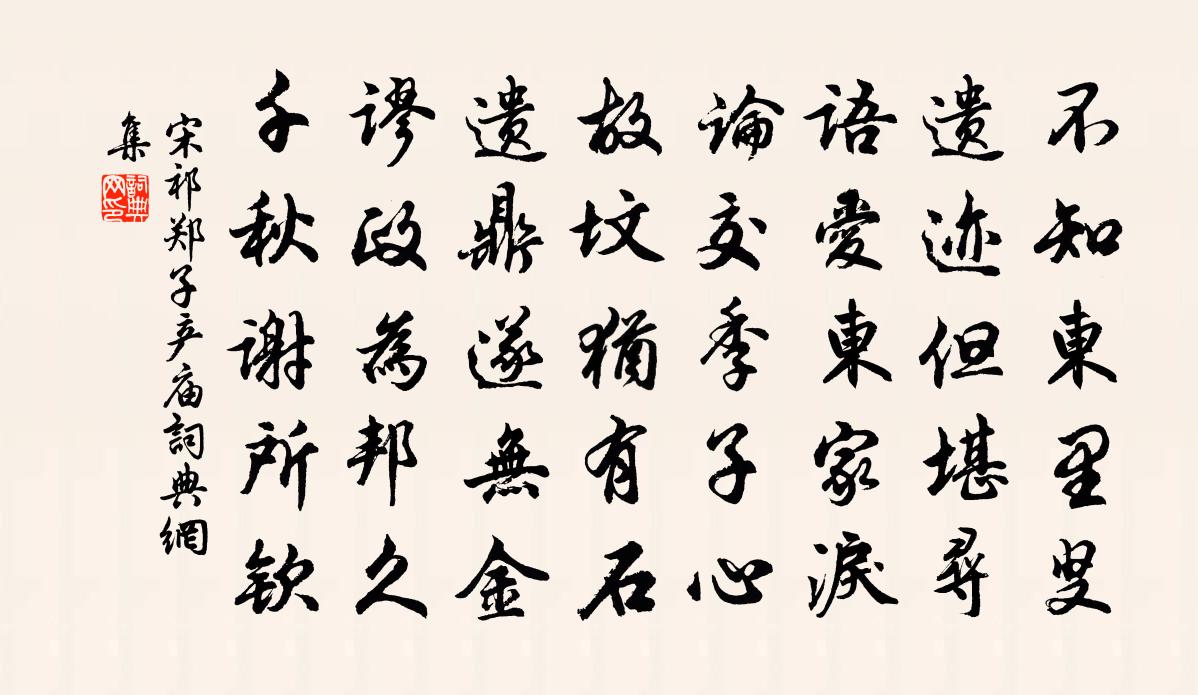 不知東里叟
遗迹但堪尋
語愛東家淚
論交季子心
故坟猶有石
遗鼎遂無金
謬政為邦久
千秋謝所欽
宋祁郑子产庙詞典網
集
詞典网印